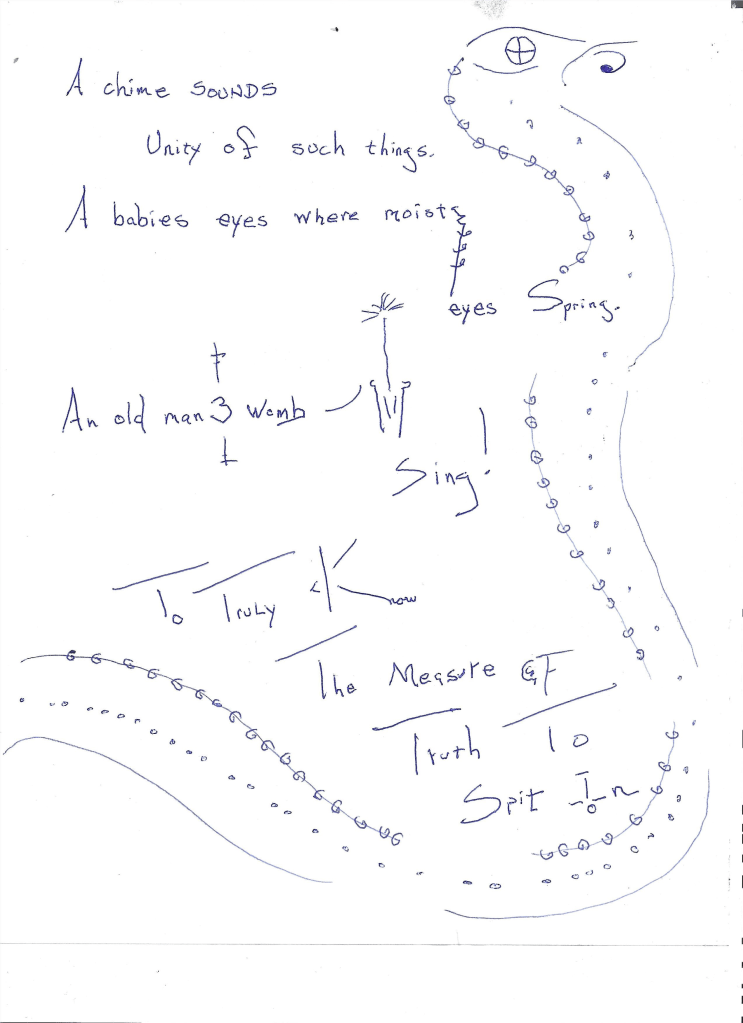 A chime SOUNDS
Unity of such things.
A babies eyes where moist
eyes Spring.
An old man 3 womb
Sing!
To Truly Know
The Measure OF
Truth To
Spit In